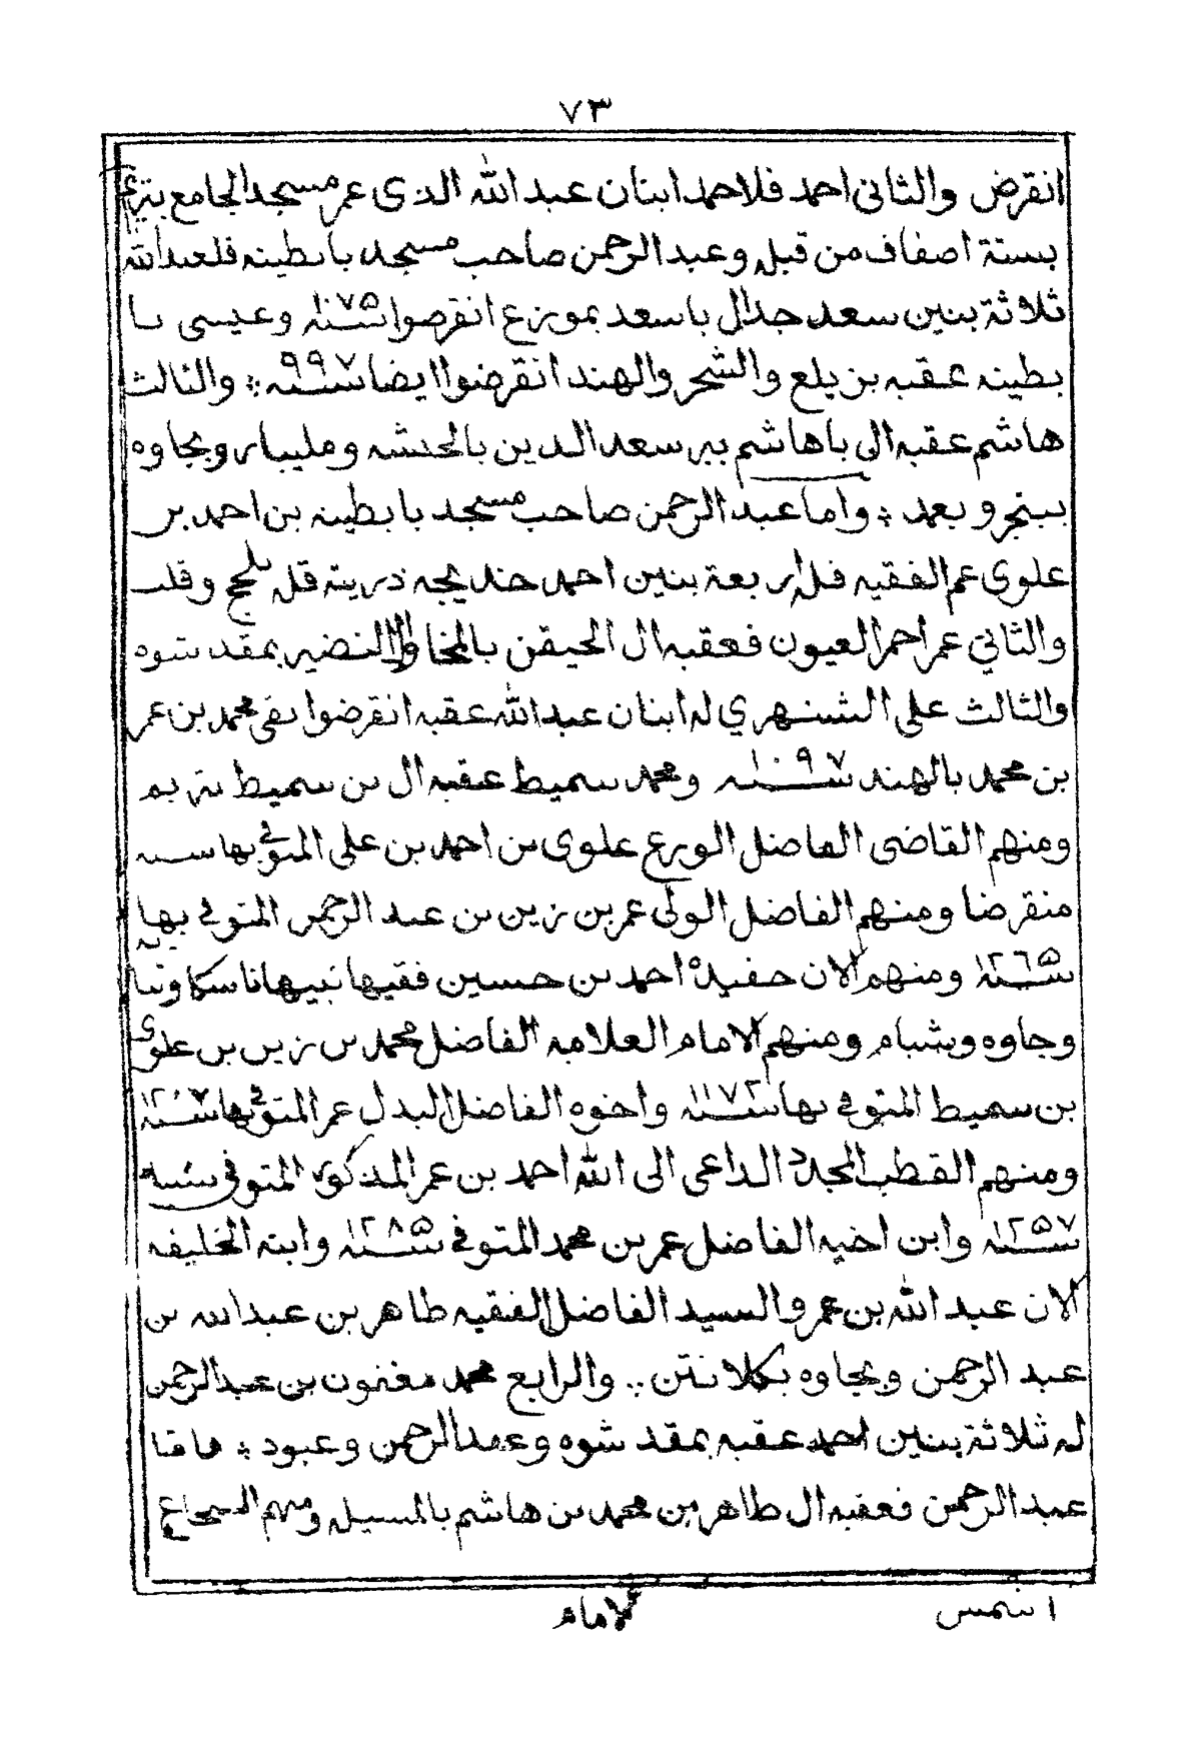 ٧٣
انقرض والثانى احمد فلاحمد ابنان عبد الله الذى عمر مسجد الجامع بتريم
بستة اصفاف من قبله وعبد الرحمن صاحب مسجد بابطينه فلعبدالله
ثلاثة بنين سعد جدال باسعد بموزع انقرضوا سنة ١٠٧٥ وعيسى با
بطينه عقبه بن يلع والشحر والهند انقرضوا ايضا سنه ٩٩٧ والثالث
هاشم عقبه الى باهاشم ببر سعد الدين بالحبشه ومليبار وبجاوه
ببنجر وبعد واما عبد الرحمن صاحب مسجد بابطينه بن احمد بن
علوى عم الفقيه فله اربعة بنين احمد جد يجه ذريته قله بلحج وقلت
والثاني عمر احمر العيون فعقبه ال الحيقن بالمخا وال النضير بمقد شوه
والثالث على الشنهزي له ابنان عبد الله عقبه انقرضوا بقى محمد بن عمر
بن محمد بالهند سنه ١٠٩٧ ومحمد سميط عقبه ال بن سميط بتريم
ومنهم القاضى الفاضل الورع علوى بن احمد بن على المتوفى بها سنه
منقرضا ومنهم الفاضل الولى عمر بن زين بن عبد الرحمن المتوفى بها
سنة ١٢٦٥ ومنهم الان حفيده احمد بن حسين فقيها نبيها ناسكا وبيته
وجاوه وبشبام ومنهم الامام العلامه الفاضل محمد بن زين بن علوى
بن سميط المتوفى بها سنة ١١٧٢ واخوه الفاضل البدل عمر المتوفى بها سنة ١٢٠٧
ومنهم القطب المجدد الداعى الى الله احمد بن عمر المذكور المتوفى سنة
سنة ١٢٥٧ وابن اخيه الفاضل عمر بن محمد المتوفى سنة ١٢٨٥ وابنه الخليفه
الان عبد الله بن عمر والسيد الفاضل الفقيه طاهر بن عبد الله بن
عبد الرحمن وبجاوه بكلانتن والرابع محمد مغنون بن عبد الرحمن
له ثلاثة بنين احمد عقبه بمقد شوه وعبد الرحمن وعبود فاما
عبد الرحمن فعقبه ال طاهر بن محمد بن هاشم بالمسيله ومنهم الشجاع
١ شمس
الامام